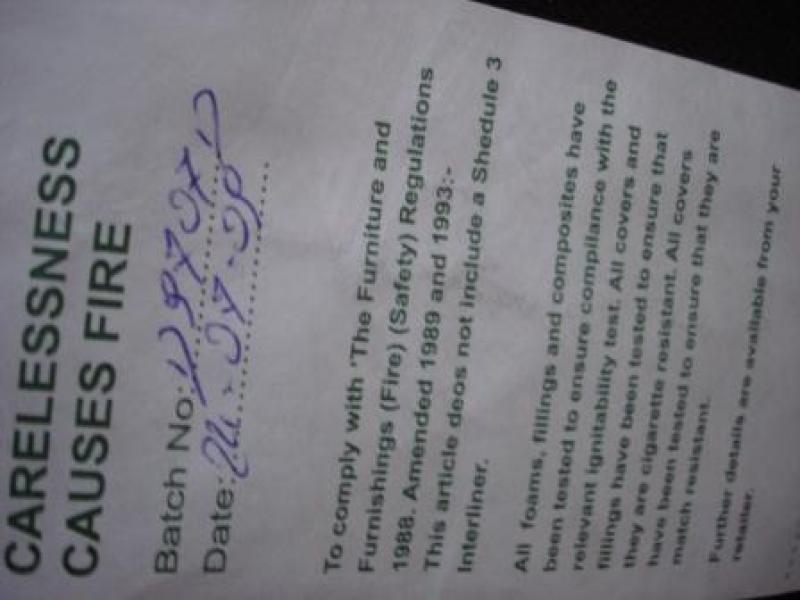 CARELESSNESS
CAUSES FIRE
Batch No:
Date: 24.07.08
To comply with 'The Furniture and
Furnishings (Fire) (Safety) Regulations
1988. Amended 1989 and 1993:-
This article deos not include a Shedule 3
Interliner.
All foams, fillings and composites have
been tested to ensure compilance with the
relevant ignitability test. All covers and
fillings have been tested to ensure that
they are cigarette resistant. All covers
have been tested to ensure that they are
match resistant.
Further details are available from your
retailer.